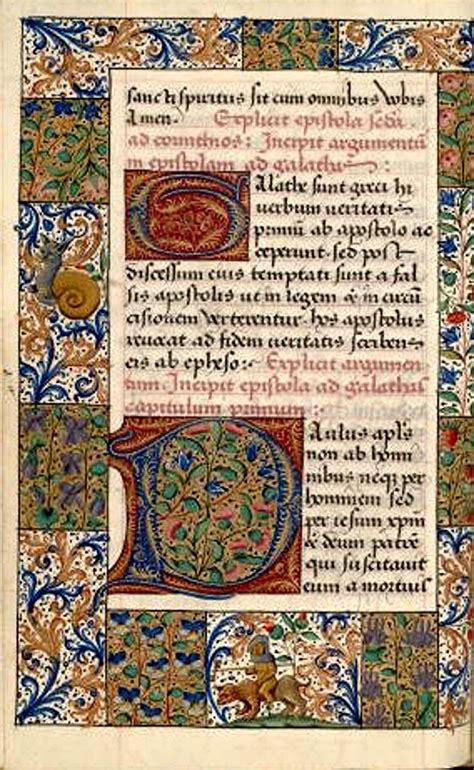 sancti spiritus sit cum omnibus vobis
Amen. Explicit epistola secūda
ad corinthios: Incipit argumentū
in epistolam ad galathas:
Galathe sunt greci hi
verbum veritatis
primū ab apostolo ac
ceperunt. sed post
discessum eius temptati sunt a fal
sis apostolis ut in legem & in circū
cisionem verterentur. hos apostolus
revocat ad fidem veritatis scribens
eis ab epheso: Explicit argumen
tum. Incipit epistola ad galathas
capitulum primum:
Paulus apls
non ab homi
nibus neqz per
hominem sed
per iesum xpm
& deum patrē
qui suscitavit
eum a mortuis